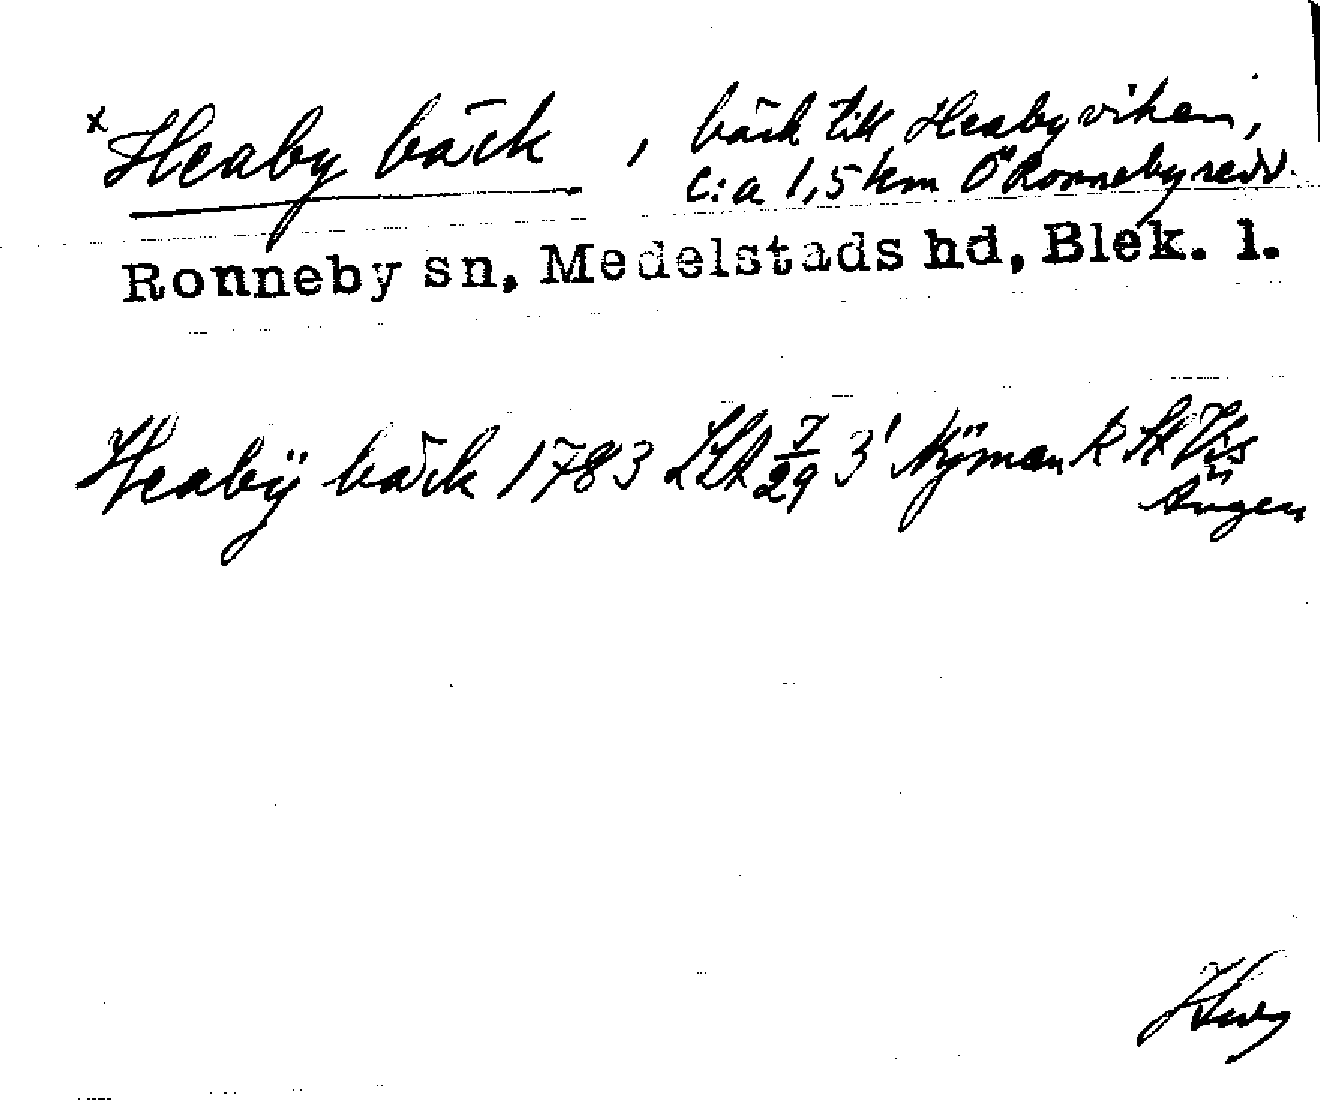 x Heaby bäck, bäck till Heabyviken,
c:a 1,5 km Ö Ronneby redd.
Ronneby sn, Medelstads hd, Blek. l.
Heabÿ bäck 1783 LSA 7/29 3' Nÿman k
Ängen